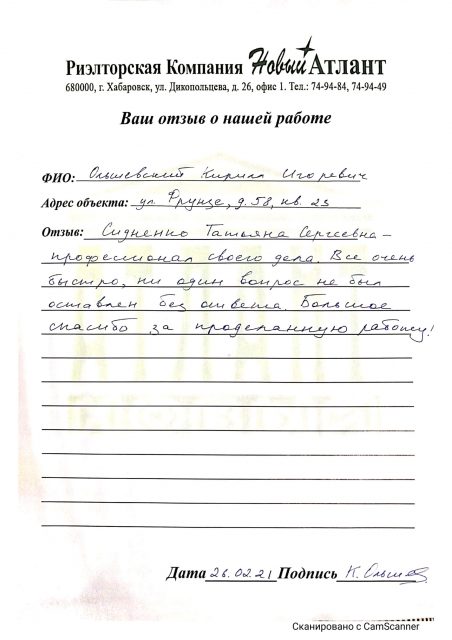 Риэлторская Компания Новый Атлант
680000, г. Хабаровск, ул. Дикопольцева, д. 26, офис 1. Тел.: 74-94-84, 74-94-49
Ваш отзыв о нашей работе
ФИО: Ольшевский Кирилл Игоревич
Адрес объекта: ул. Фрунзе, д. 58, кв. 23
Отзыв: Сидненко Татьяна Сергеевна -
профессионал своего дела. Все очень
быстро, ни один вопрос не был
оставлен без ответа. Большое
спасибо за проделанную работу!
Дата 26.02.21 Подпись К. Ольшев
Сканировано с CamScanner